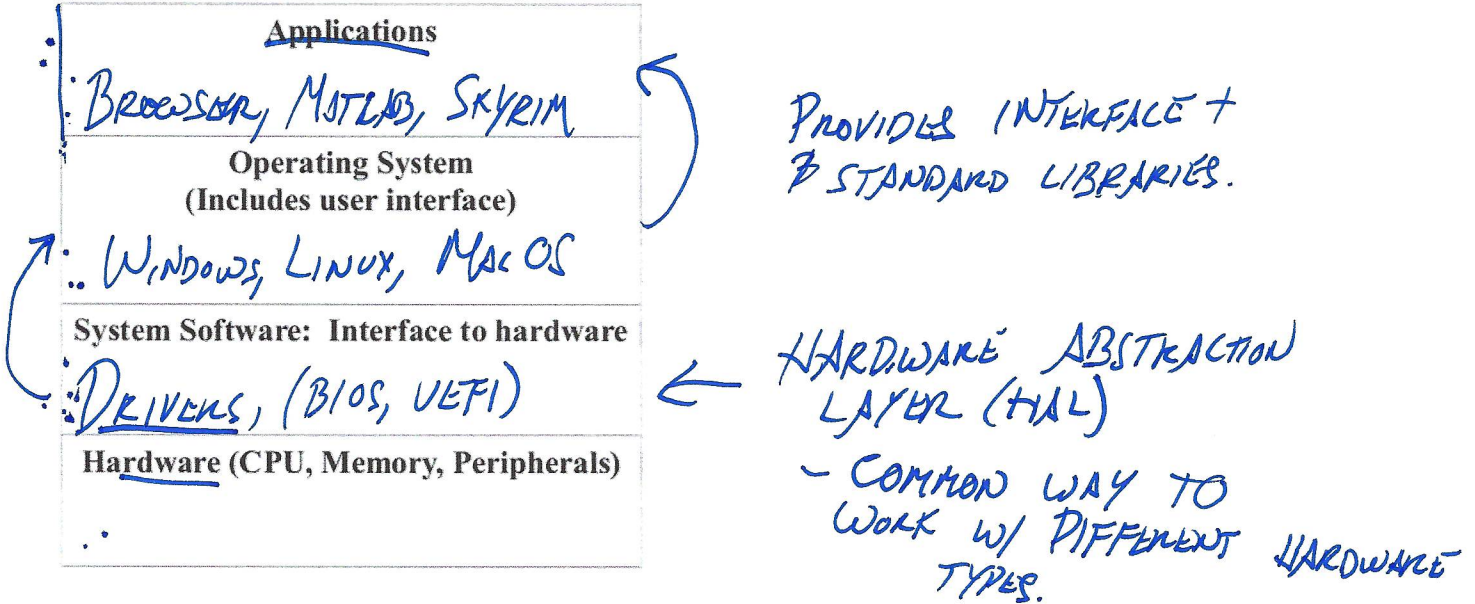 Applications
BROWSER, MATLAB, SKYRIM
Operating System
(Includes user interface)
WINDOWS, LINUX, MAC OS
System Software: Interface to hardware
DRIVERS, (BIOS, UEFI)
Hardware (CPU, Memory, Peripherals)
PROVIDES INTERFACE +
STANDARD LIBRARIES.
HARDWARE ABSTRACTION
LAYER (HAL)
- COMMON WAY TO
WORK W/ DIFFERENT HARDWARE
TYPES.